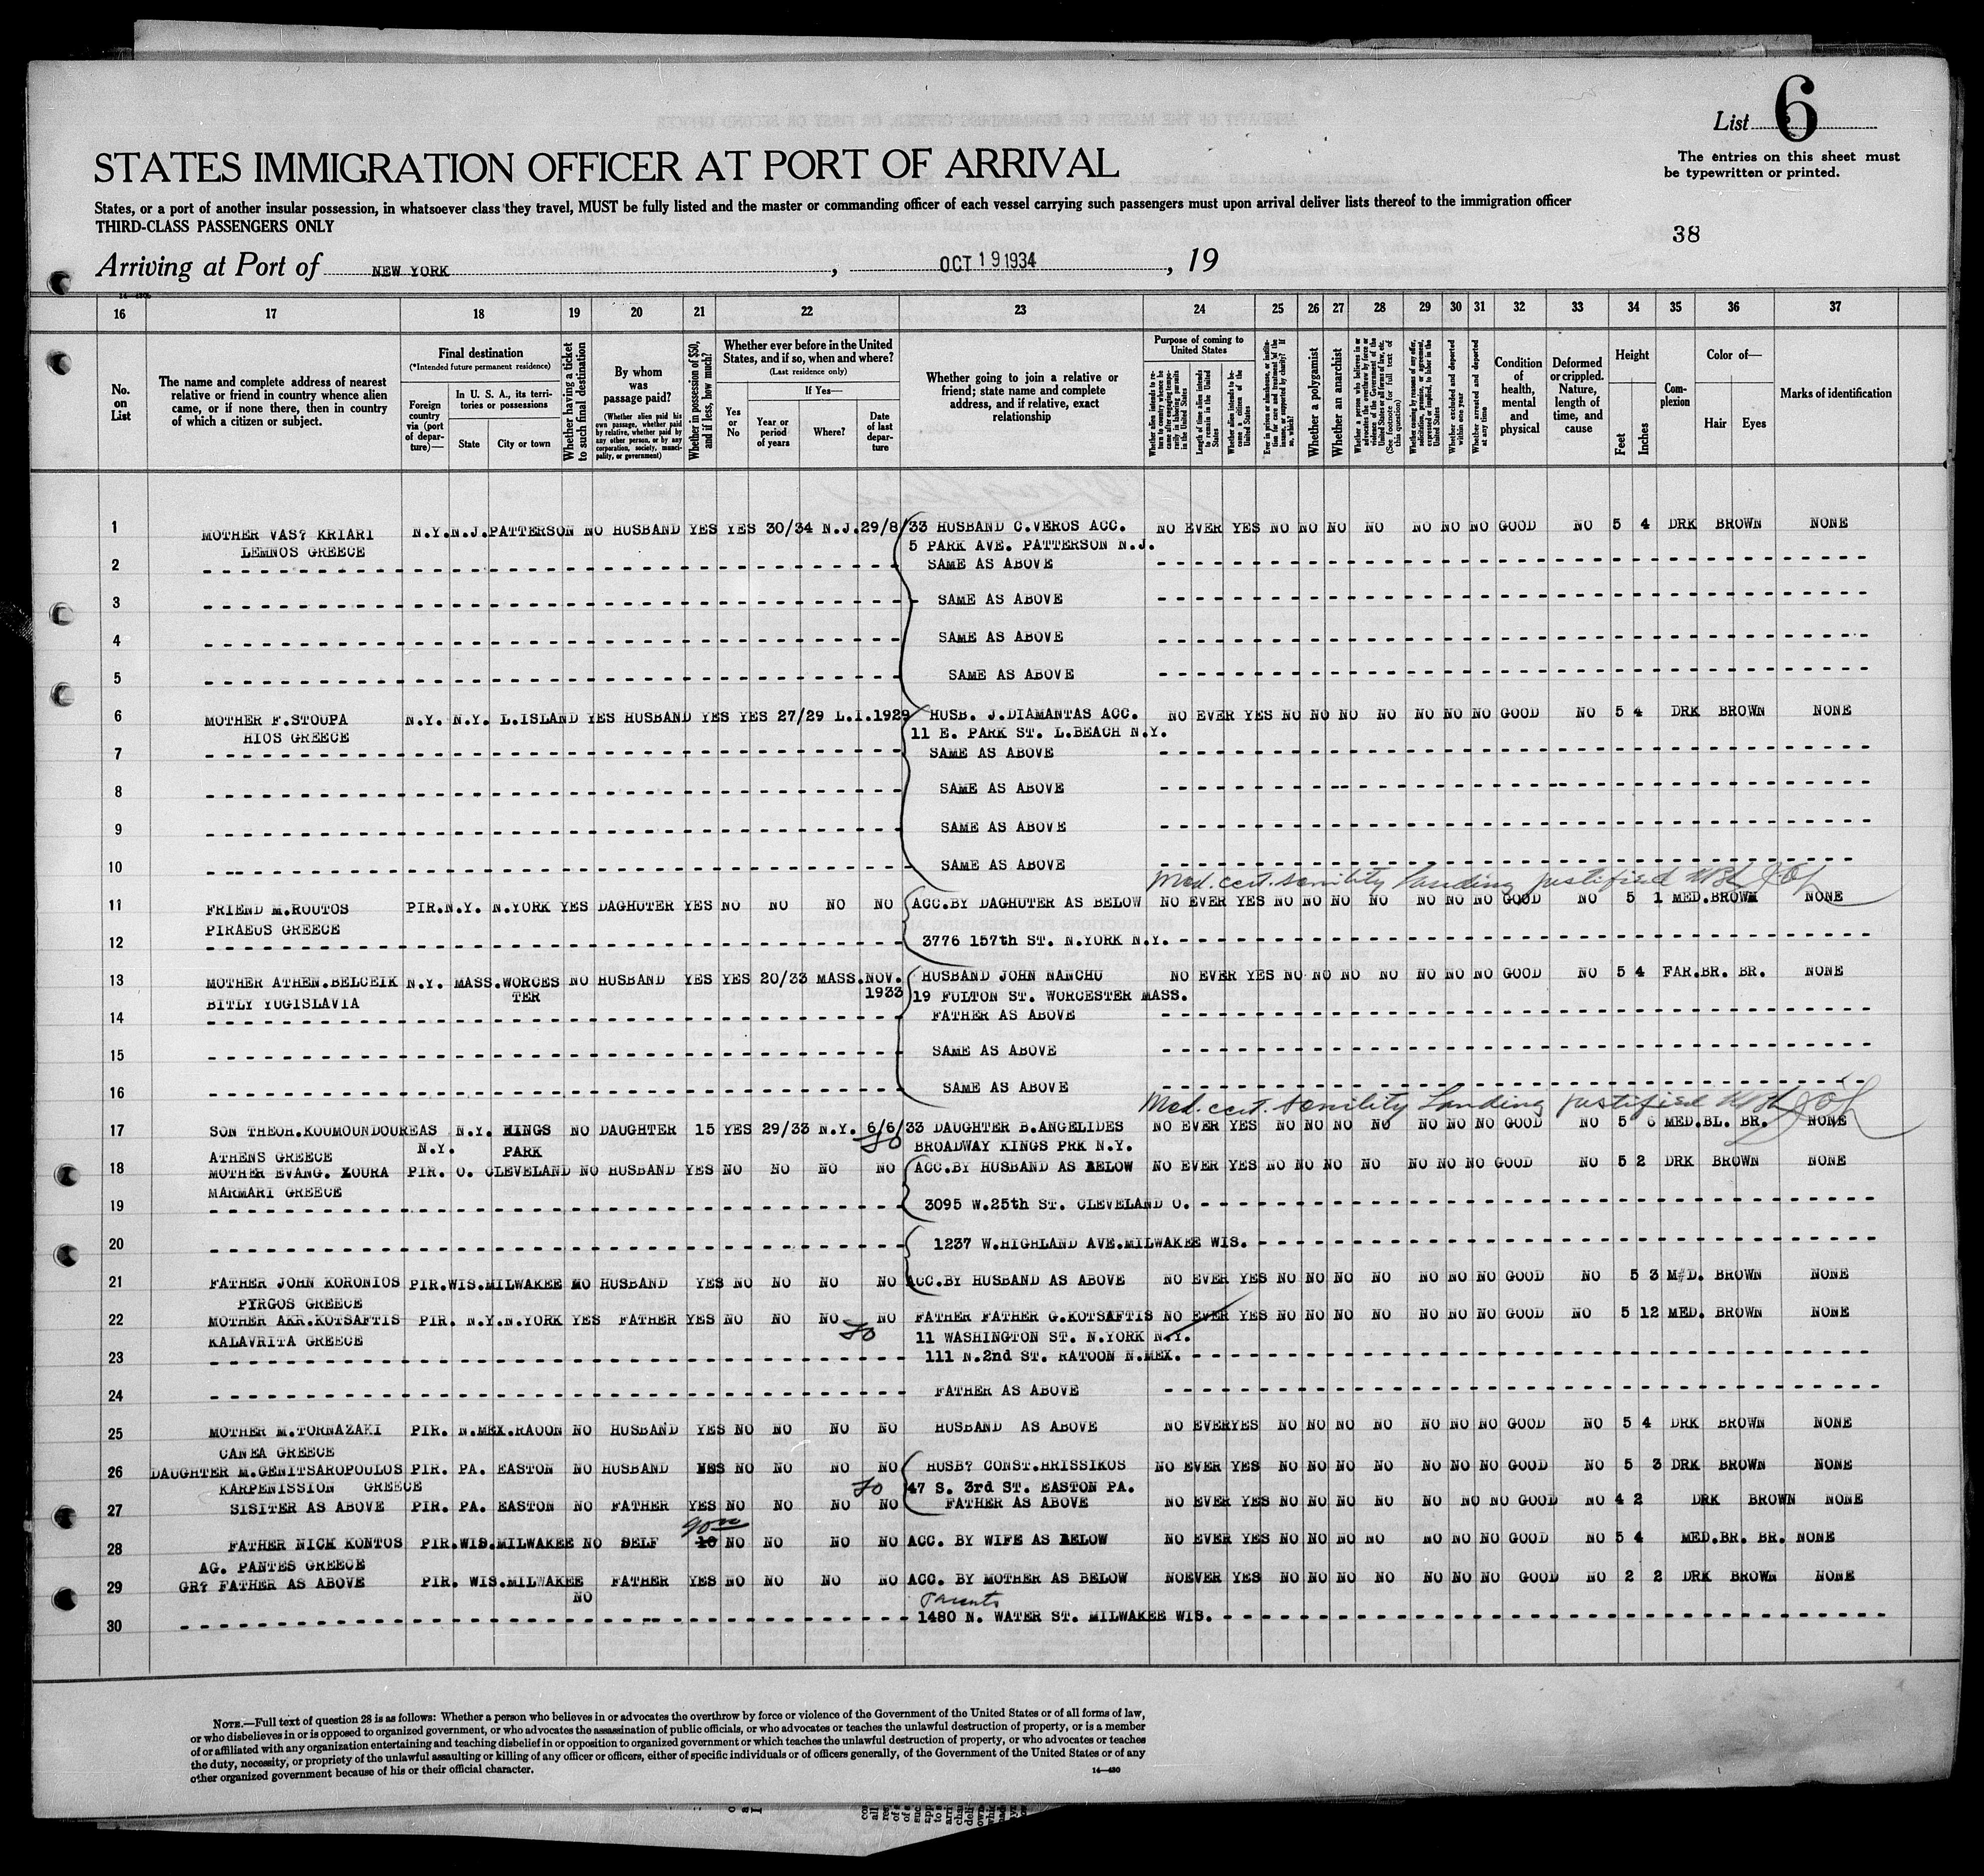 List 6
The entries on this sheet must
be typewritten or printed.
STATES IMMIGRATION OFFICER AT PORT OF ARRIVAL
States, or a port of another insular possession, in whatsoever class they travel, MUST be fully listed and the master or commanding officer of each vessel carrying such passengers must upon arrival deliver lists thereof to the immigration officer
THIRD-CLASS PASSENGERS ONLY
38
Arriving at Port of NEW YORK, OCT 19 1934, 19
16 17 18 19 20 21 22 23 24 25 26 27 28 29 30 31 32 33 34 35 36 37
No. on List
The name and complete address of nearest
relative or friend in country whence alien
came, or if none there, then in country
of which a citizen or subject.
Final destination
(*Intended future permanent residence)
Foreign country via (port of departure)—
In U. S. A., its territories or possessions
State
City or town
Whether having a ticket to such final destination
By whom was passage paid?
(Whether alien paid his own passage, whether paid by relative, whether paid by any other person, or by any corporation, society, municipality, or government)
Whether in possession of $50, and if less, how much?
Whether ever before in the United States, and if so, when and where?
(Last residence only)
Yes or No
If Yes—
Year or period of years
Where?
Date of last departure
Whether going to join a relative or
friend; state name and complete
address, and if relative, exact
relationship
Purpose of coming to United States
Length of time alien intends to remain in the United States
Whether alien intends to become a citizen of the United States
Whether a polygamist
Whether an anarchist
Whether excluded and deported within one year
Whether arrested and deported at any time
Condition of health, mental and physical
Deformed or crippled. Nature, length of time, and cause
Height
Feet
Inches
Complexion
Color of—
Hair
Eyes
Marks of identification
1 MOTHER VAS? KRIARI N.Y. N.J. PATTERSON NO HUSBAND YES YES 30/34 N.J. 29/8/33 HUSBAND C.VEROS ACC. NO EVER YES NO NO NO NO NO NO NO GOOD NO 5 4 DRK BROWN NONE
LEMNOS GREECE 5 PARK AVE. PATTERSON N.J.
2 SAME AS ABOVE
3 SAME AS ABOVE
4 SAME AS ABOVE
5 SAME AS ABOVE
6 MOTHER F.STOUPA N.Y. N.Y. L.ISLAND YES HUSBAND YES YES 27/29 L.I. 1929 HUSB. J.DIAMANTAS ACC. NO EVER YES NO NO NO NO NO NO NO GOOD NO 5 4 DRK BROWN NONE
HIOS GREECE 11 E. PARK ST. L.BEACH N.Y.
7 SAME AS ABOVE
8 SAME AS ABOVE
9 SAME AS ABOVE
10 SAME AS ABOVE
Med. cert. senility Landing justified
11 FRIEND M.ROUTOS PIR. N.Y. N.YORK YES DAGHUTER YES NO NO NO NO ACC.BY DAGHUTER AS BELOW NO EVER YES NO NO NO NO NO NO NO GOOD NO 5 1 MED. BROWN NONE
PIRAEUS GREECE
12 3776 157th ST. N.YORK N.Y.
13 MOTHER ATHEN.BELCEIK N.Y. MASS. WORCES NO HUSBAND YES YES 20/33 MASS. NOV. HUSBAND JOHN NANCHU NO EVER YES NO NO NO NO NO NO NO GOOD NO 5 4 FAR. BR. BR. NONE
BITLY YUGISLAVIA TER 1933 19 FULTON ST. WORCESTER MASS.
14 FATHER AS ABOVE
15 SAME AS ABOVE
16 SAME AS ABOVE
Med. cert. senility Landing justified
17 SON THEOH.KOUMOUNDOUREAS N.Y. KINGS NO DAUGHTER 15 YES 29/33 N.Y. 6/6/33 DAUGHTER B.ANGELIDES NO EVER YES NO NO NO NO NO NO NO GOOD NO 5 6 MED. BL. BR. NONE
ATHENS GREECE N.Y. PARK BROADWAY KINGS PRK N.Y.
18 MOTHER EVANG. ZOURA PIR. O. CLEVELAND NO HUSBAND YES NO NO NO NO ACC.BY HUSBAND AS BELOW NO EVER YES NO NO NO NO NO NO NO GOOD NO 5 2 DRK BROWN NONE
MARMARI GREECE
19 3095 W.25th ST. CLEVELAND O.
20 1237 W.HIGHLAND AVE.MILWAKEE WIS.
21 FATHER JOHN KORONIOS PIR. WIS. MILWAKEE NO HUSBAND YES NO NO NO NO ACC.BY HUSBAND AS ABOVE NO EVER YES NO NO NO NO NO NO NO GOOD NO 5 3 M#D. BROWN NONE
PYRGOS GREECE
22 MOTHER AKR.KOTSAFTIS PIR. N.Y. N.YORK YES FATHER YES NO NO NO NO FATHER FATHER G.KOTSAFTIS NO EVER YES NO NO NO NO NO NO NO GOOD NO 5 12 MED. BROWN NONE
KALAVRITA GREECE 11 WASHINGTON ST. N.YORK N.Y.
23 111 N.2nd ST. RATOON N.MEX.
24 FATHER AS ABOVE
25 MOTHER M.TORNAZAKI PIR. N.MEX. RAOON NO HUSBAND YES NO NO NO NO HUSBAND AS ABOVE NO EVERYES NO NO NO NO NO NO NO GOOD NO 5 4 DRK BROWN NONE
CANEA GREECE
26 DAUGHTER M.GENITSAROPOULOS PIR. PA. EASTON NO HUSBAND YES NO NO NO NO HUSB? CONST.HRISSIKOS NO EVER YES NO NO NO NO NO NO NO GOOD NO 5 3 DRK BROWN NONE
KARPENISSION GREECE 47 S. 3rd ST. EASTON PA.
27 SISITER AS ABOVE PIR. PA. EASTON NO FATHER YES NO NO NO NO FATHER AS ABOVE NO EVER YES NO NO NO NO NO NO NO GOOD NO 4 2 DRK BROWN NONE
28 FATHER NICH KONTOS PIR. WIS. MILWAKEE NO SELF 10 NO NO NO NO ACC. BY WIFE AS BELOW NO EVER YES NO NO NO NO NO NO NO GOOD NO 5 4 MED. BR. BR. NONE
AG. PANTES GREECE
29 GR? FATHER AS ABOVE PIR. WIS. MILWAKEE FATHER YES NO NO NO NO ACC. BY MOTHER AS BELOW NOEVER YES NO NO NO NO NO NO NO GOOD NO 2 2 DRK BROWN NONE
NO Parents
30 1480 N. WATER ST. MILWAKEE WIS.
NOTE.—Full text of question 28 is as follows: Whether a person who believes in or advocates the overthrow by force or violence of the Government of the United States or of all forms of law,
or who disbelieves in or is opposed to organized government, or who advocates the assassination of public officials, or who advocates or teaches the unlawful destruction of property, or is a member
of or affiliated with any organization entertaining and teaching disbelief in or opposition to organized government or which teaches the unlawful destruction of property, or who advocates or teaches
the duty, necessity, or propriety of the unlawful assaulting or killing of any officer or officers, either of specific individuals or of officers generally, of the Government of the United States or of any
other organized government because of his or their official character.
14—430